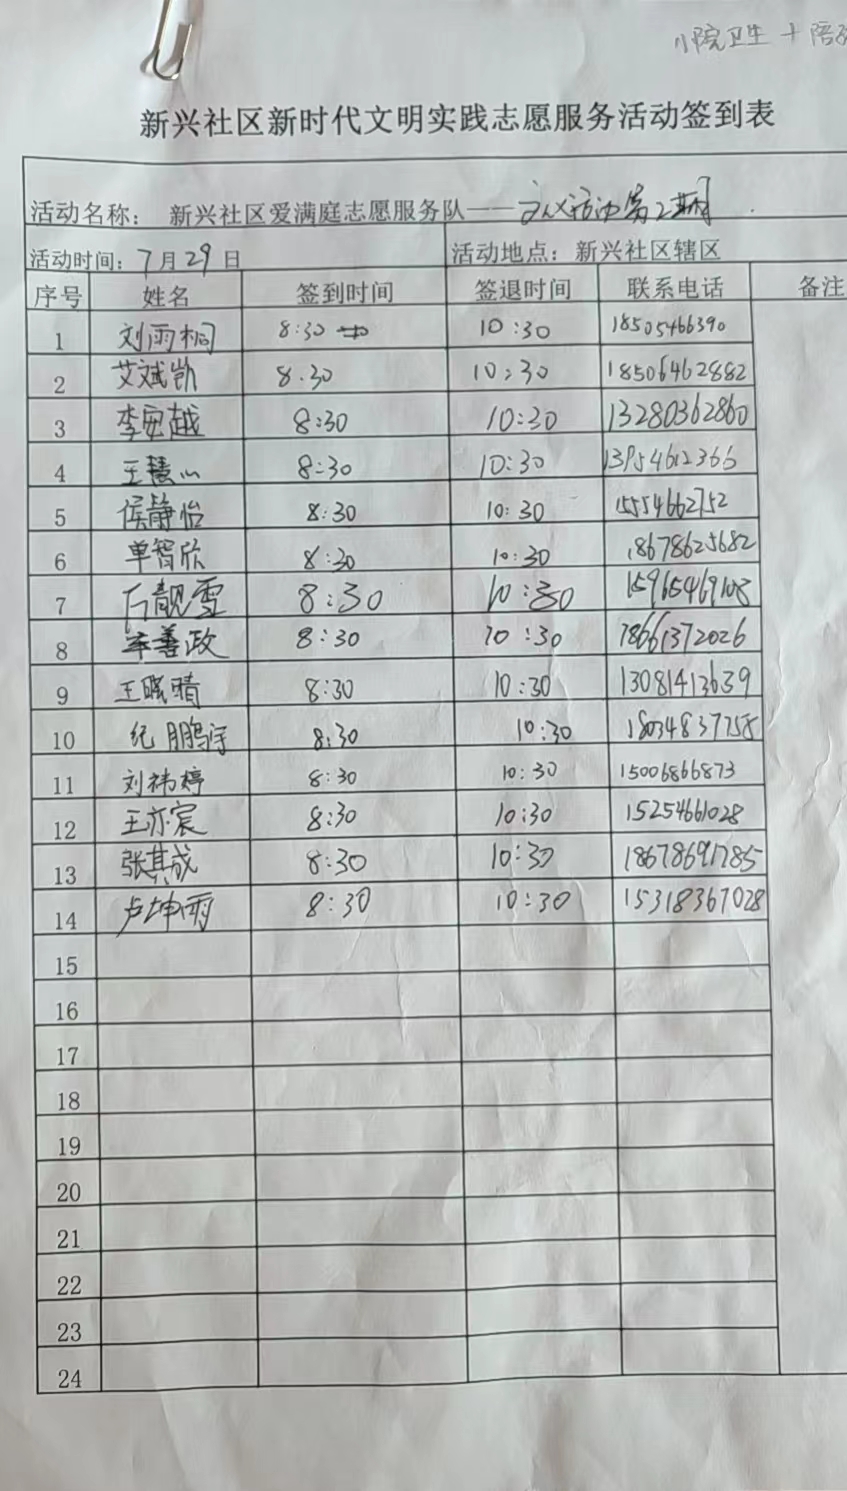 小院卫生 + 陪
新兴社区新时代文明实践志愿服务活动签到表
活动名称： 新兴社区爱满庭志愿服务队——活动第2期
活动时间：7月29日 活动地点：新兴社区辖区
序号 姓名 签到时间 签退时间 联系电话 备注
1 刘雨桐 8:30 10:30 18505466390
2 艾斌凯 8.30 10:30 18506462882
3 李宛越 8:30 10:30 13280362860
4 王慧心 8:30 10:30 13954612366
5 侯静怡 8:30 10:30 15554662752
6 单智欣 8:30 10:30 18678625682
7 石靓雪 8:30 10:30 15965469108
8 善政 8:30 10:30 18661372026
9 王晓晴 8:30 10:30 13081413639
10 纪鹏宇 8:30 10:30 18034837758
11 刘祎婷 8:30 10:30 15006866873
12 王亦宸 8:30 10:30 15254661028
13 张其成 8:30 10:30 18678691785
14 卢坤雨 8:30 10:30 15318367028
15
16
17
18
19
20
21
22
23
24